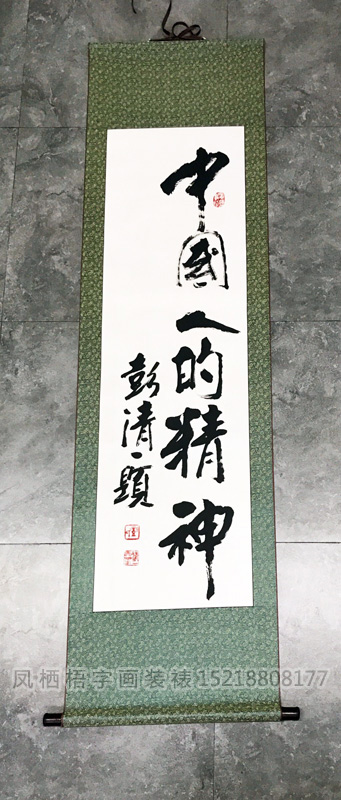 中國人的精神
彭清一題
凤栖梧字画装裱15218808177